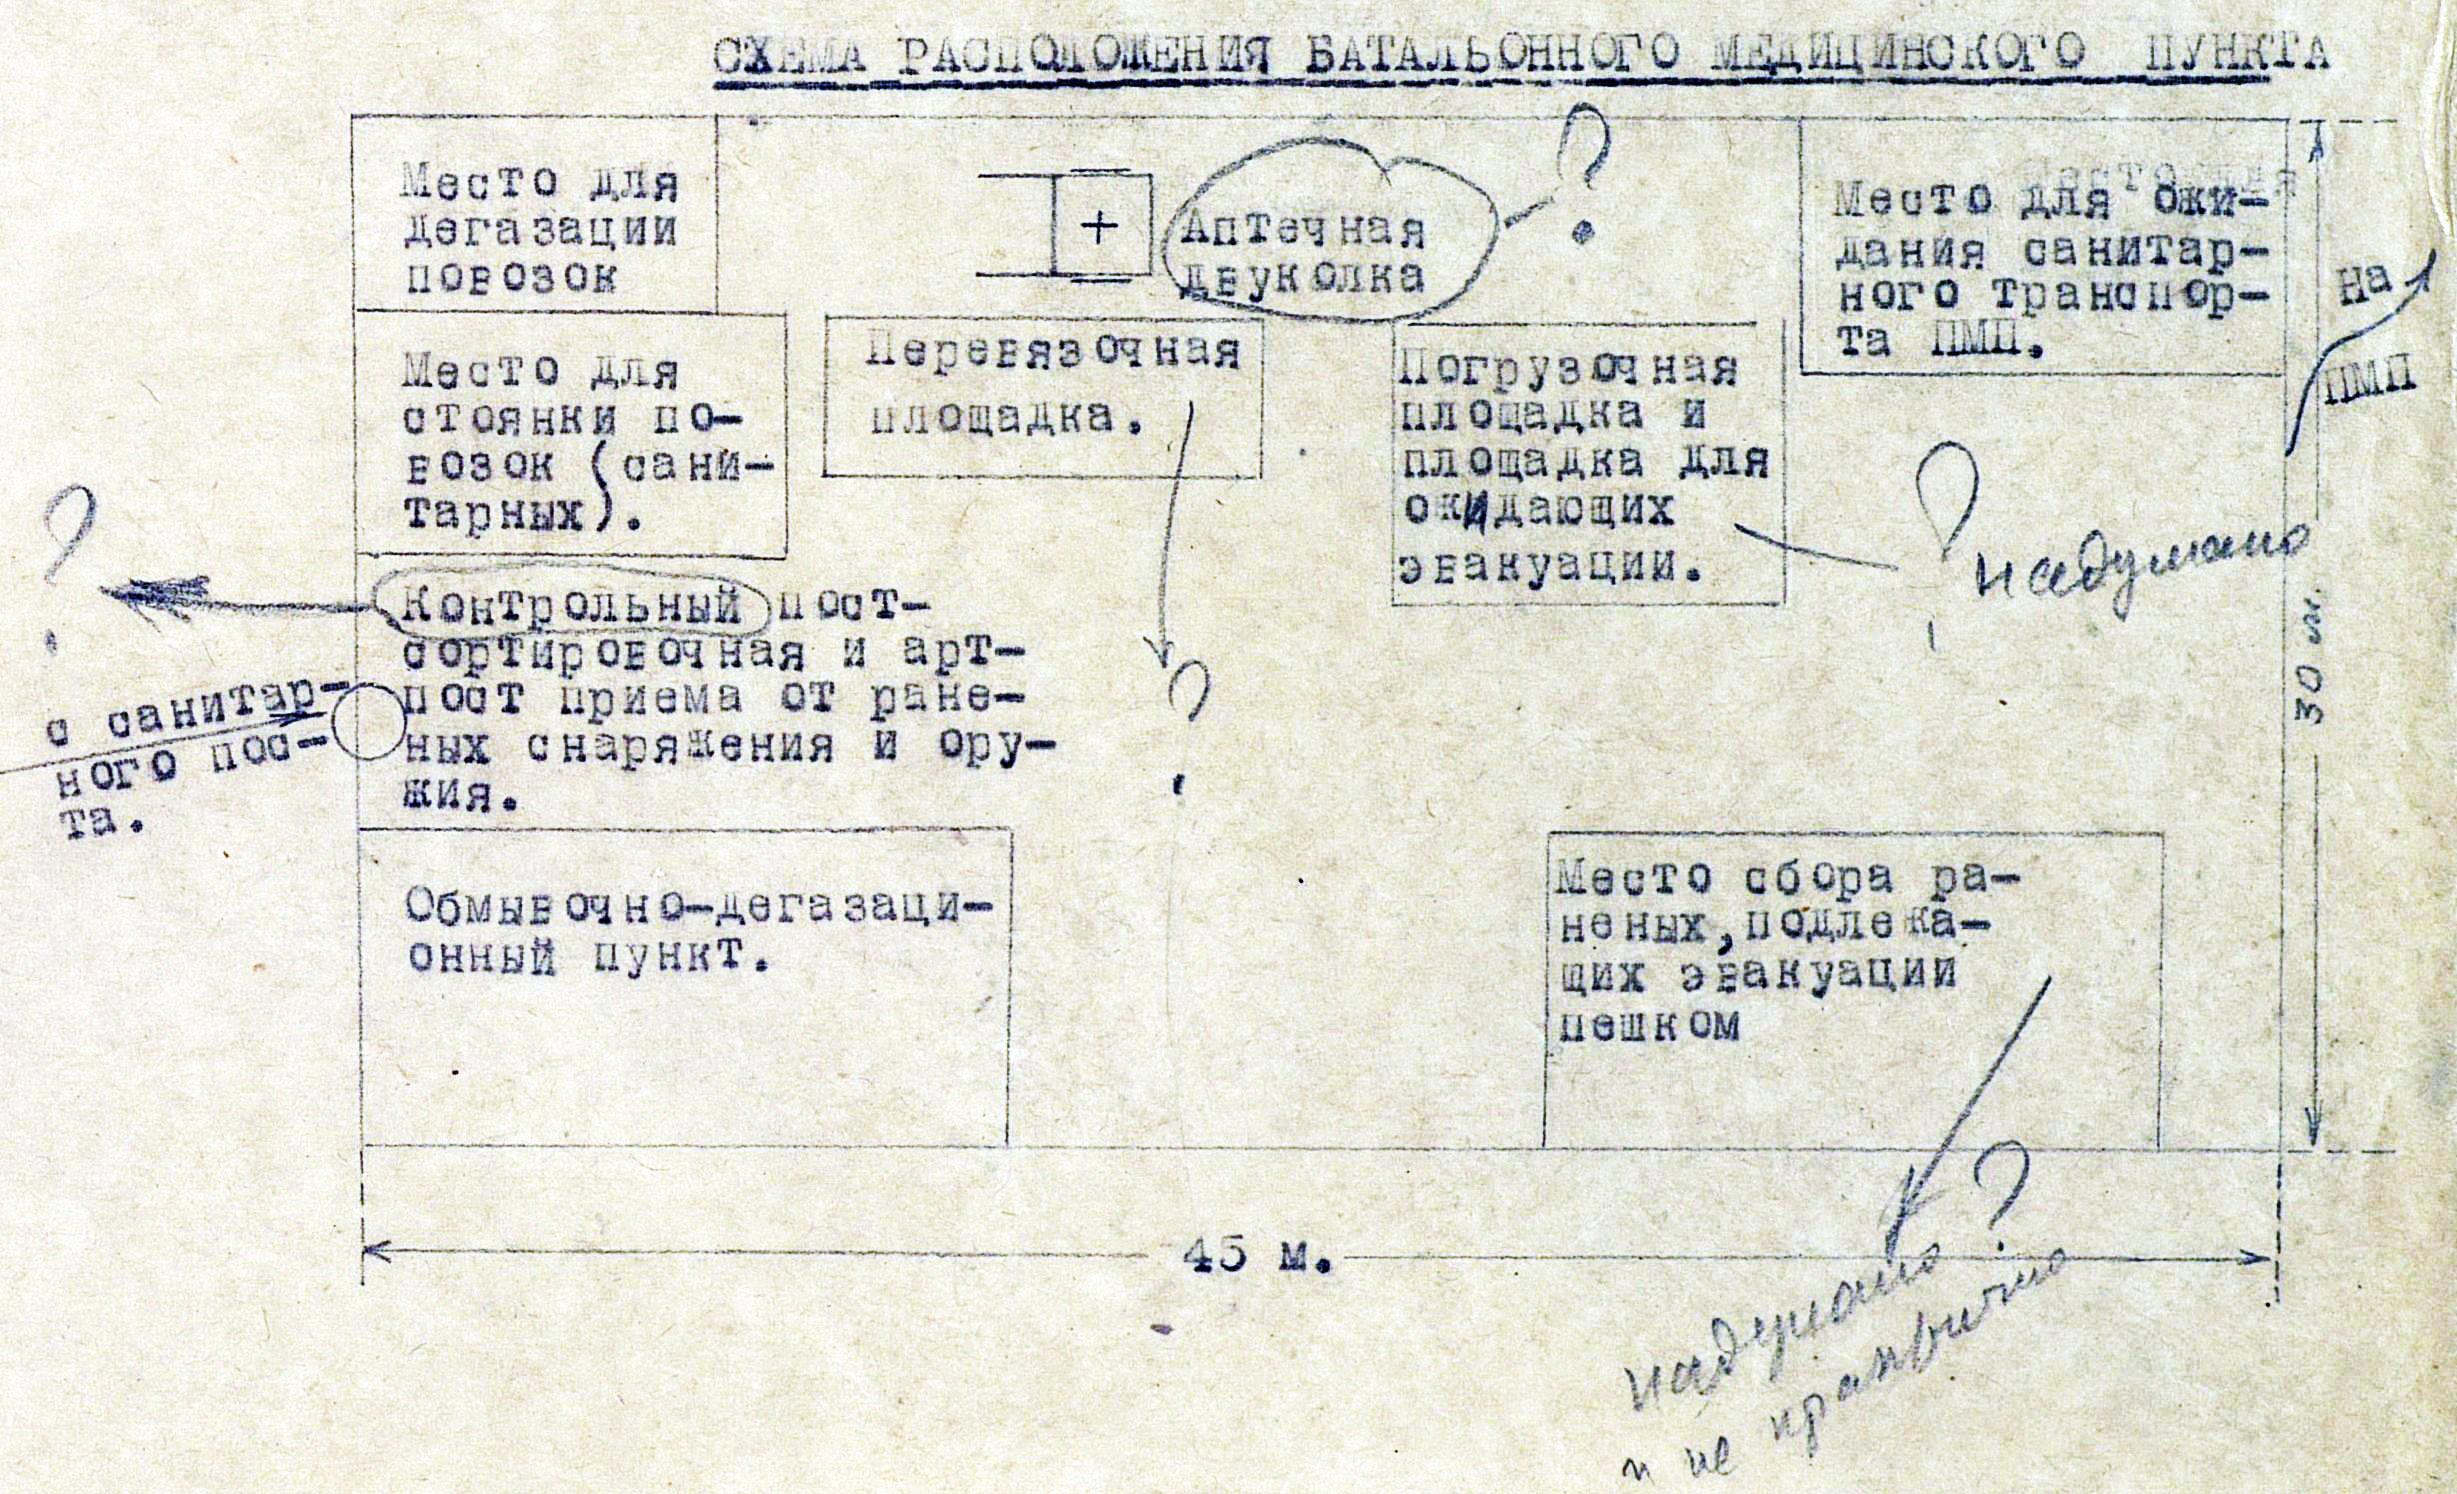 СХЕМА РАСПОЛОЖЕНИЯ БАТАЛЬОННОГО МЕДИЦИНСКОГО ПУНКТА
Место для
дегазации
повозок
+
Аптечная
двуколка
?
Место для ожи-
дания санитар-
ного транспор-
та ПМП.
На
ПМП
Место для
стоянки по-
возок (сани-
тарных).
Перевязочная
площадка.
?
Погрузочная
площадка и
площадка для
ожидающих
эвакуации.
?
надумано
30 м.
?
Контрольный пост-
сортировочная и арт-
пост приема от ране-
ных снаряжения и ору-
жия.
с санитар-
ного пос-
та.
Обмывочно-дегазаци-
онный пункт.
Место сбора ра-
неных, подлежа-
щих эвакуации
пешком
?
45 м.
надумано
и не практично